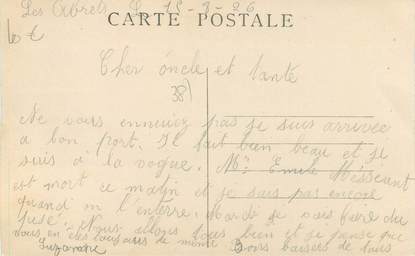 Les Abrets 15-7-26
CARTE POSTALE
10 €
Cher oncle et tante
38)
Ne vous ennuiez pas je suis arrivee
a bon port. Il fait bien beau et je
suis a la vogue. Mr Emile Meissent
est mort ce matin et je sais pas encore
quand on l'enterre. Mardi je vais faire du
Nous allons tous bien et je pense que
vous en êtes toujours de meme Bons baisers de tous
Suzanne